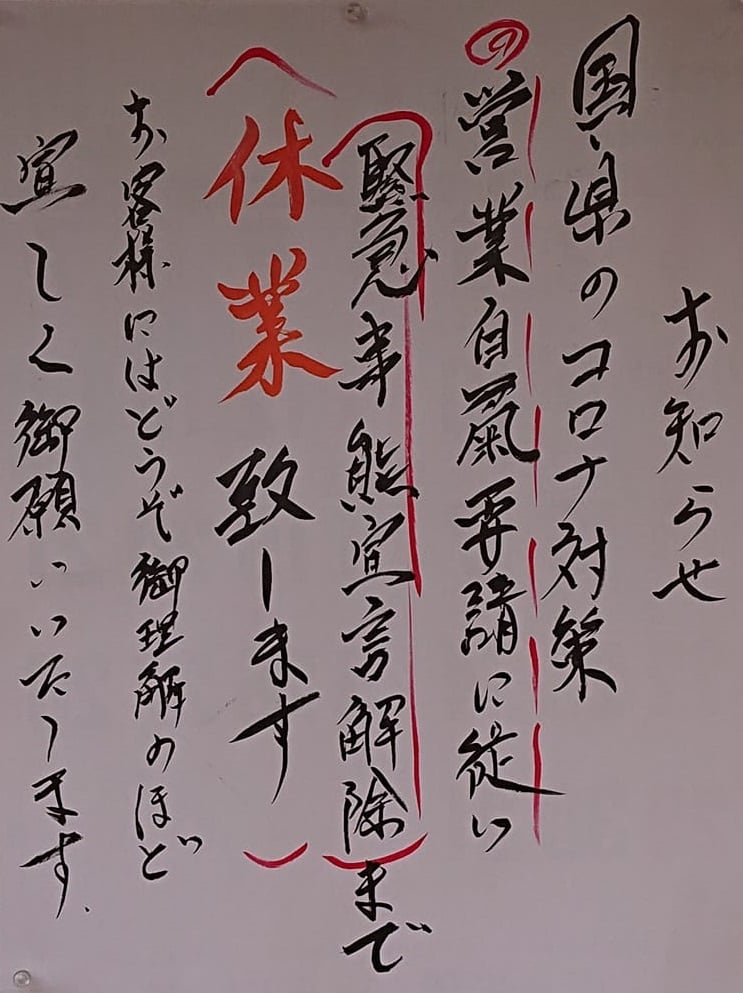 お知らせ
国、県のコロナ対策
◎営業自粛要請に従い
(緊急事態宣言解除)まで
(休業致します)
お客様にはどうぞ御理解のほど
宜しく御願いいたします.